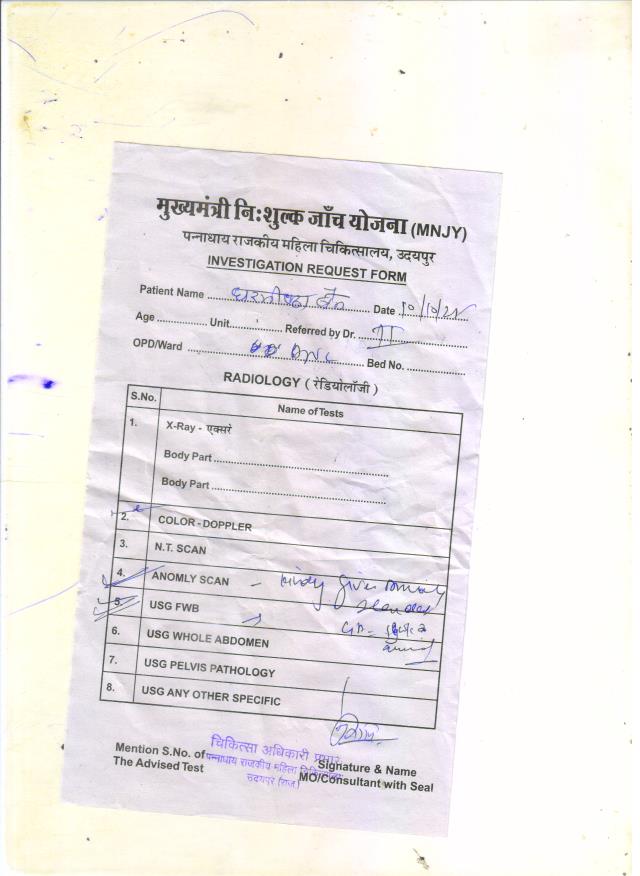 मुख्यमंत्री निःशुल्क जाँच योजना (MNJY)
पन्नाधाय राजकीय महिला चिकित्सालय, उदयपुर
INVESTIGATION REQUEST FORM
Patient Name .................... Date
Age .............. Unit.............. Referred by Dr. II
OPD/Ward .................... Bed No. ..................
RADIOLOGY ( रेडियोलॉजी )
S.No. Name of Tests
1. X-Ray - एक्सरे
Body Part ....................
Body Part ....................
2. COLOR - DOPPLER
3. N.T. SCAN
4. ANOMLY SCAN - kindly give
5. USG FWB
6. USG WHOLE ABDOMEN
7. USG PELVIS PATHOLOGY
8. USG ANY OTHER SPECIFIC
चिकित्सा अधिकारी प्रभारी
पन्नाधाय राजकीय महिला चिकित्सालय
उदयपुर (राज.)
Mention S.No. of
The Advised Test
Signature & Name
MO/Consultant with Seal